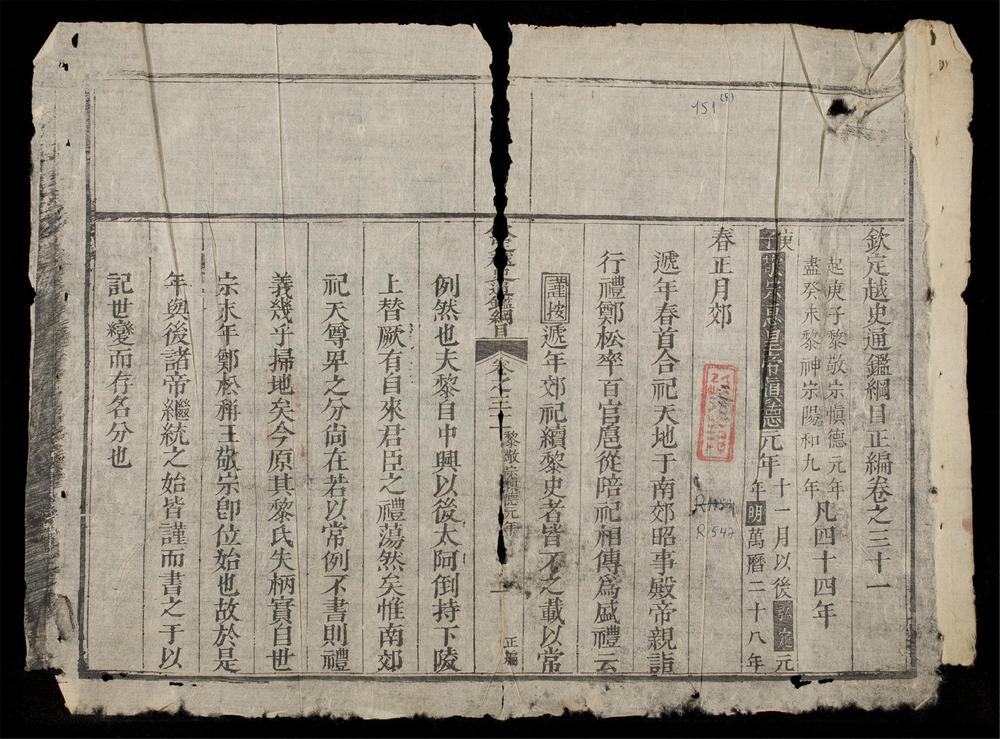 欽定越史通鑑綱目正編卷之三十一
起庚子黎敬宗慎德元年
盡癸未黎神宗陽和九年
凡四十四年
庚子敬宗惠皇帝慎德元年十一月以後弘定元年明萬曆二十八年
春正月郊
遞年春首合祀天地于南郊昭事殿帝親詣
行禮鄭松率百官扈從陪祀相傳為盛禮云
謹按遞年郊祀續黎史者皆不之載以常
欽定越史通鑑綱目 卷之三十一 黎敬宗慎德元年 一 正編
例然也夫黎自中興以後太阿倒持下陵
上替厥有自來君臣之禮蕩然矣惟南郊
祀天尊卑之分尚在若以常例不書則禮
義幾乎掃地矣今原其黎氏失柄實自世
宗末年鄭松稱王敬宗卽位始也故於是
年與後諸帝繼統之始皆謹而書之于以
記世變而存名分也
151
R 547